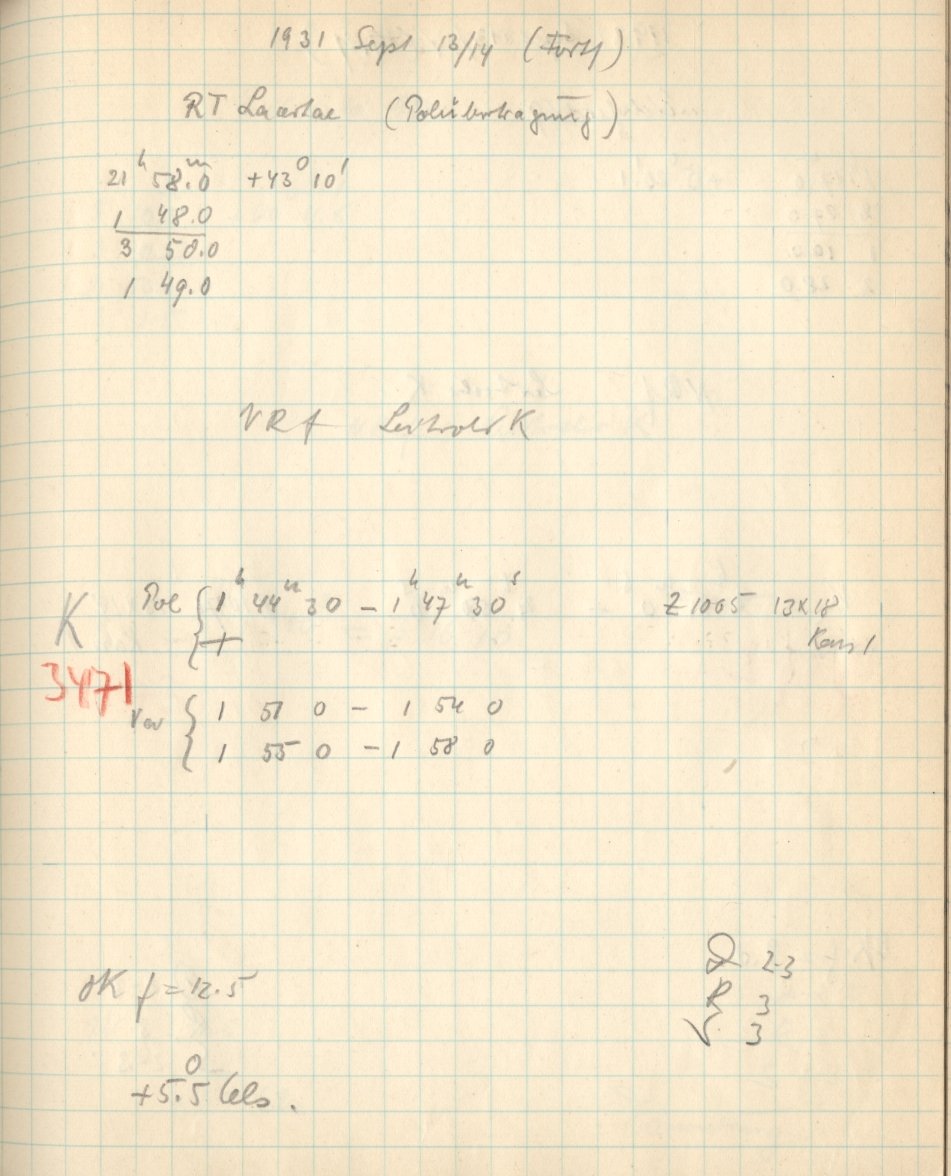 1931 Sept 13/14 (Forts)
RT Lacertae (Polübertragung)
21h 58.m0 +43° 10'
1 48.0
3 50.0
1 49.0
K
Pol { 1h 44m 30 – 1h 47m 30s
+
Z 1065 13x18
3471
Var { 1 51 0 – 1 54 0
1 55 0 – 1 58 0
2-3
3
3
f = 12.5
+5.°5 Cels.